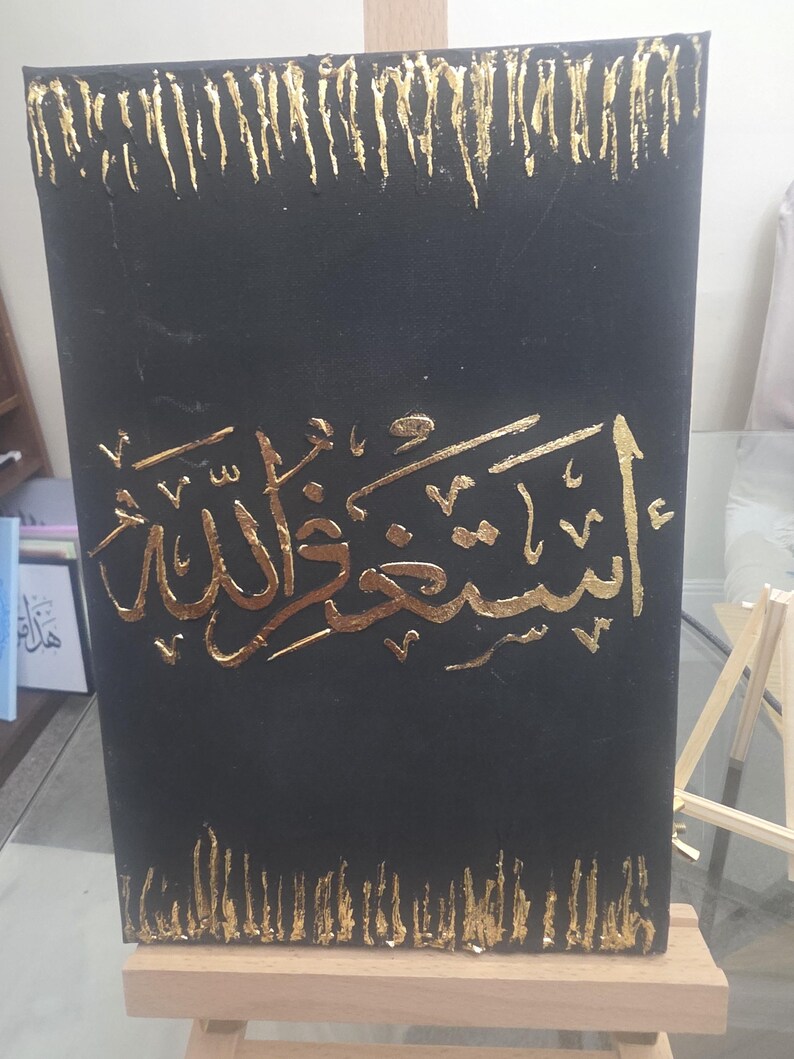 أستغفر الله
هذا من